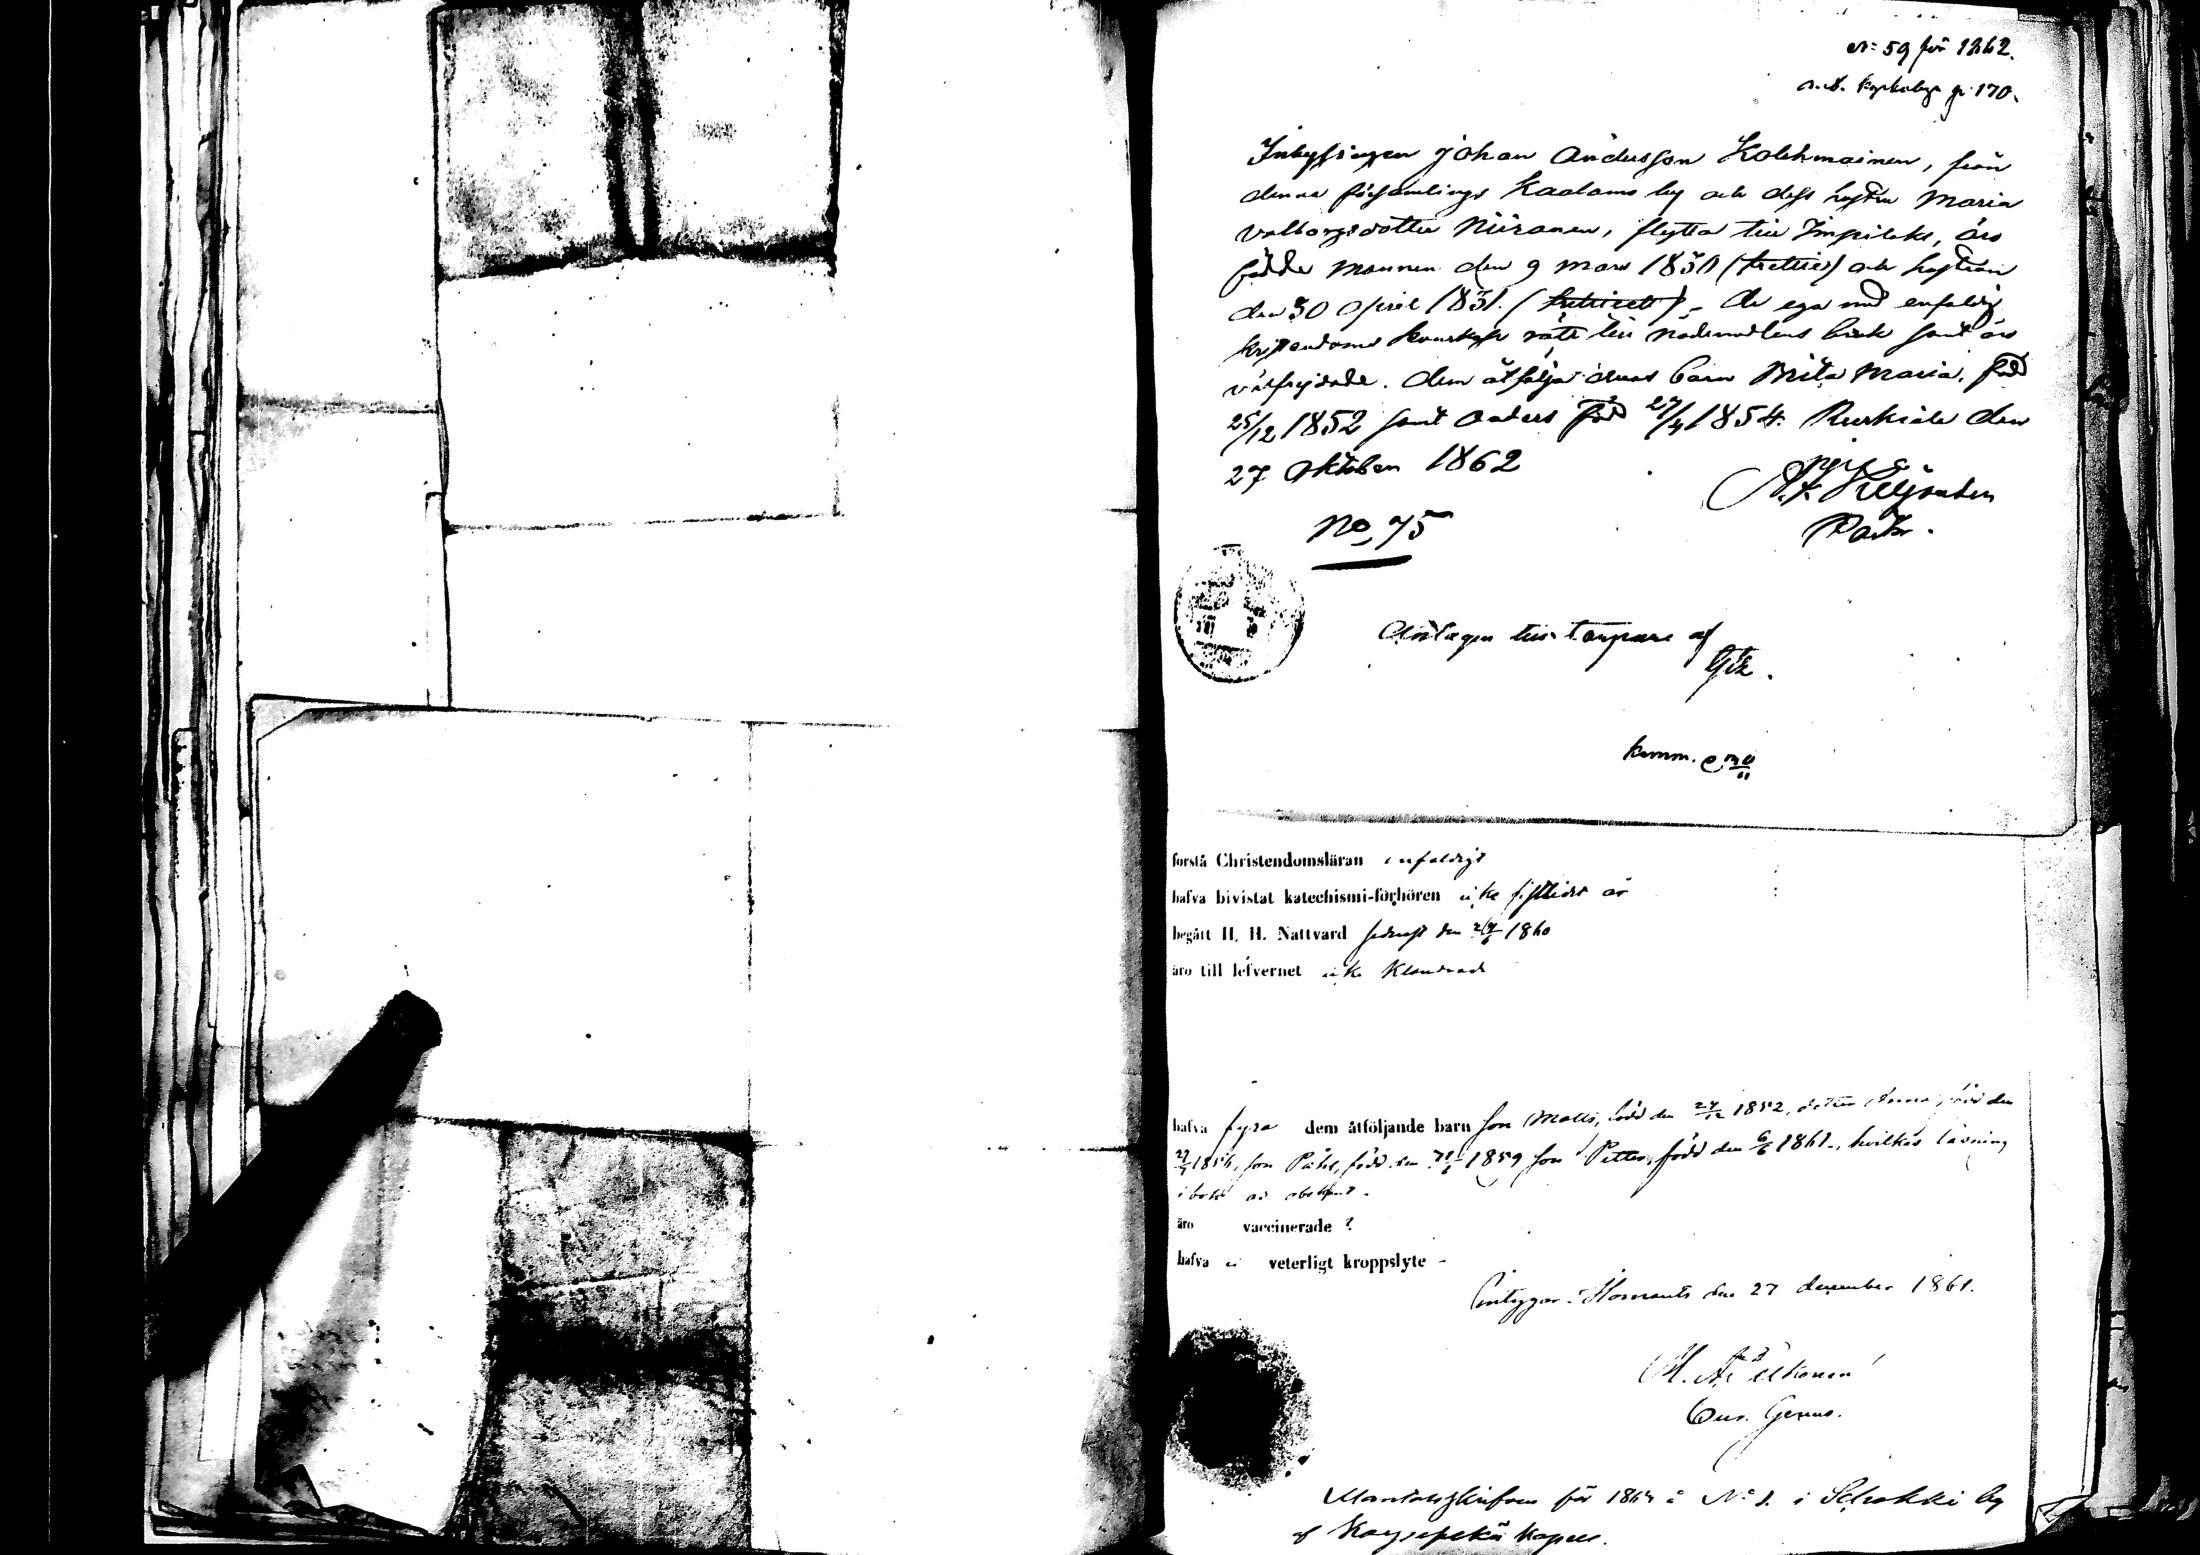 N:o 59 för 1862.
170.
Inhysingen Johan Andersson Kolehmainen, från
denna församlings Kaalamo by och dess hustru Maria
Valborgsdotter Niiranen, flytta till Impilaks, äro
födde mannen den 9 mars 1830 (trettio) och hustrun
den 30 April 1831. - De ega med enfaldig
kristendoms kunskap rätt till nådemedlens bruk samt äro
välfrejdade. Dem åtfölja deras barn Brita Maria, född
25/12 1852 samt Anders född 27/4 1854. Ruskiala den
27 Oktober 1862
Pastor.
No, 75
Antagen till torpare af
komm. 30/11
förstå Christendomsläran enfaldigt
hafva bivistat katechismi-förhören icke sistlidet år
begått H. H. Nattvard sednast den 1860
äro till lefvernet icke klandrade
hafva fyra dem åtföljande barn son Matts, född den 24/12 1852, dotter Anna, född den
1856, son Påhl, född den 1859 son Petter, född den 6/6 1861., hvilkas läsning
i bok är obekant.
äro vaccinerade ?
hafva ej veterligt kroppslyte -
Intygar. Ilomants den 27 december 1861.
Mantalsskrifven för 1864 å N:o 1. i by
af kapell.